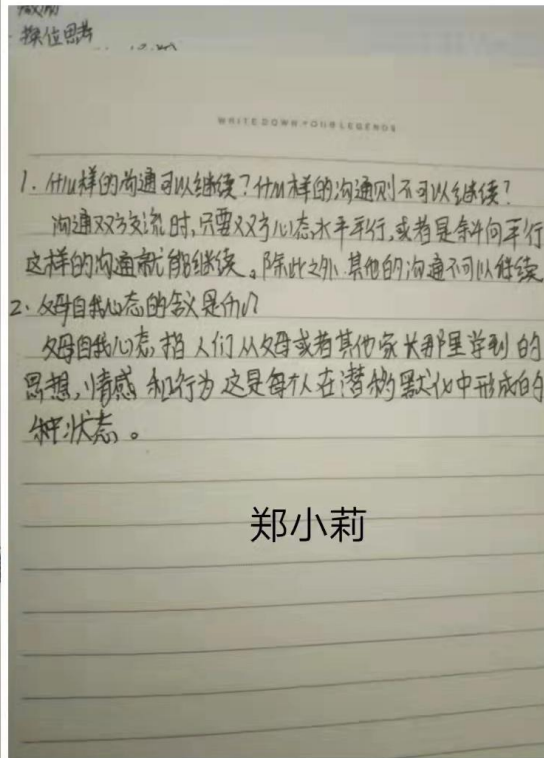 换位思考
WRITE DOWN YOUR LEGENDS
1. 什么样的沟通可以继续?什么样的沟通则不可以继续?
沟通双方交流时,只要双方心态水平平行,或者是条件向平行
这样的沟通就能继续。除此之外 其他的沟通不可以继续
2. 父母自我心态的含义是什么
父母自我心态,指人们从父母或者其他家长那里学到的
思想,情感和行为 这是每个人在潜移默化中形成的
种状态。
郑小莉